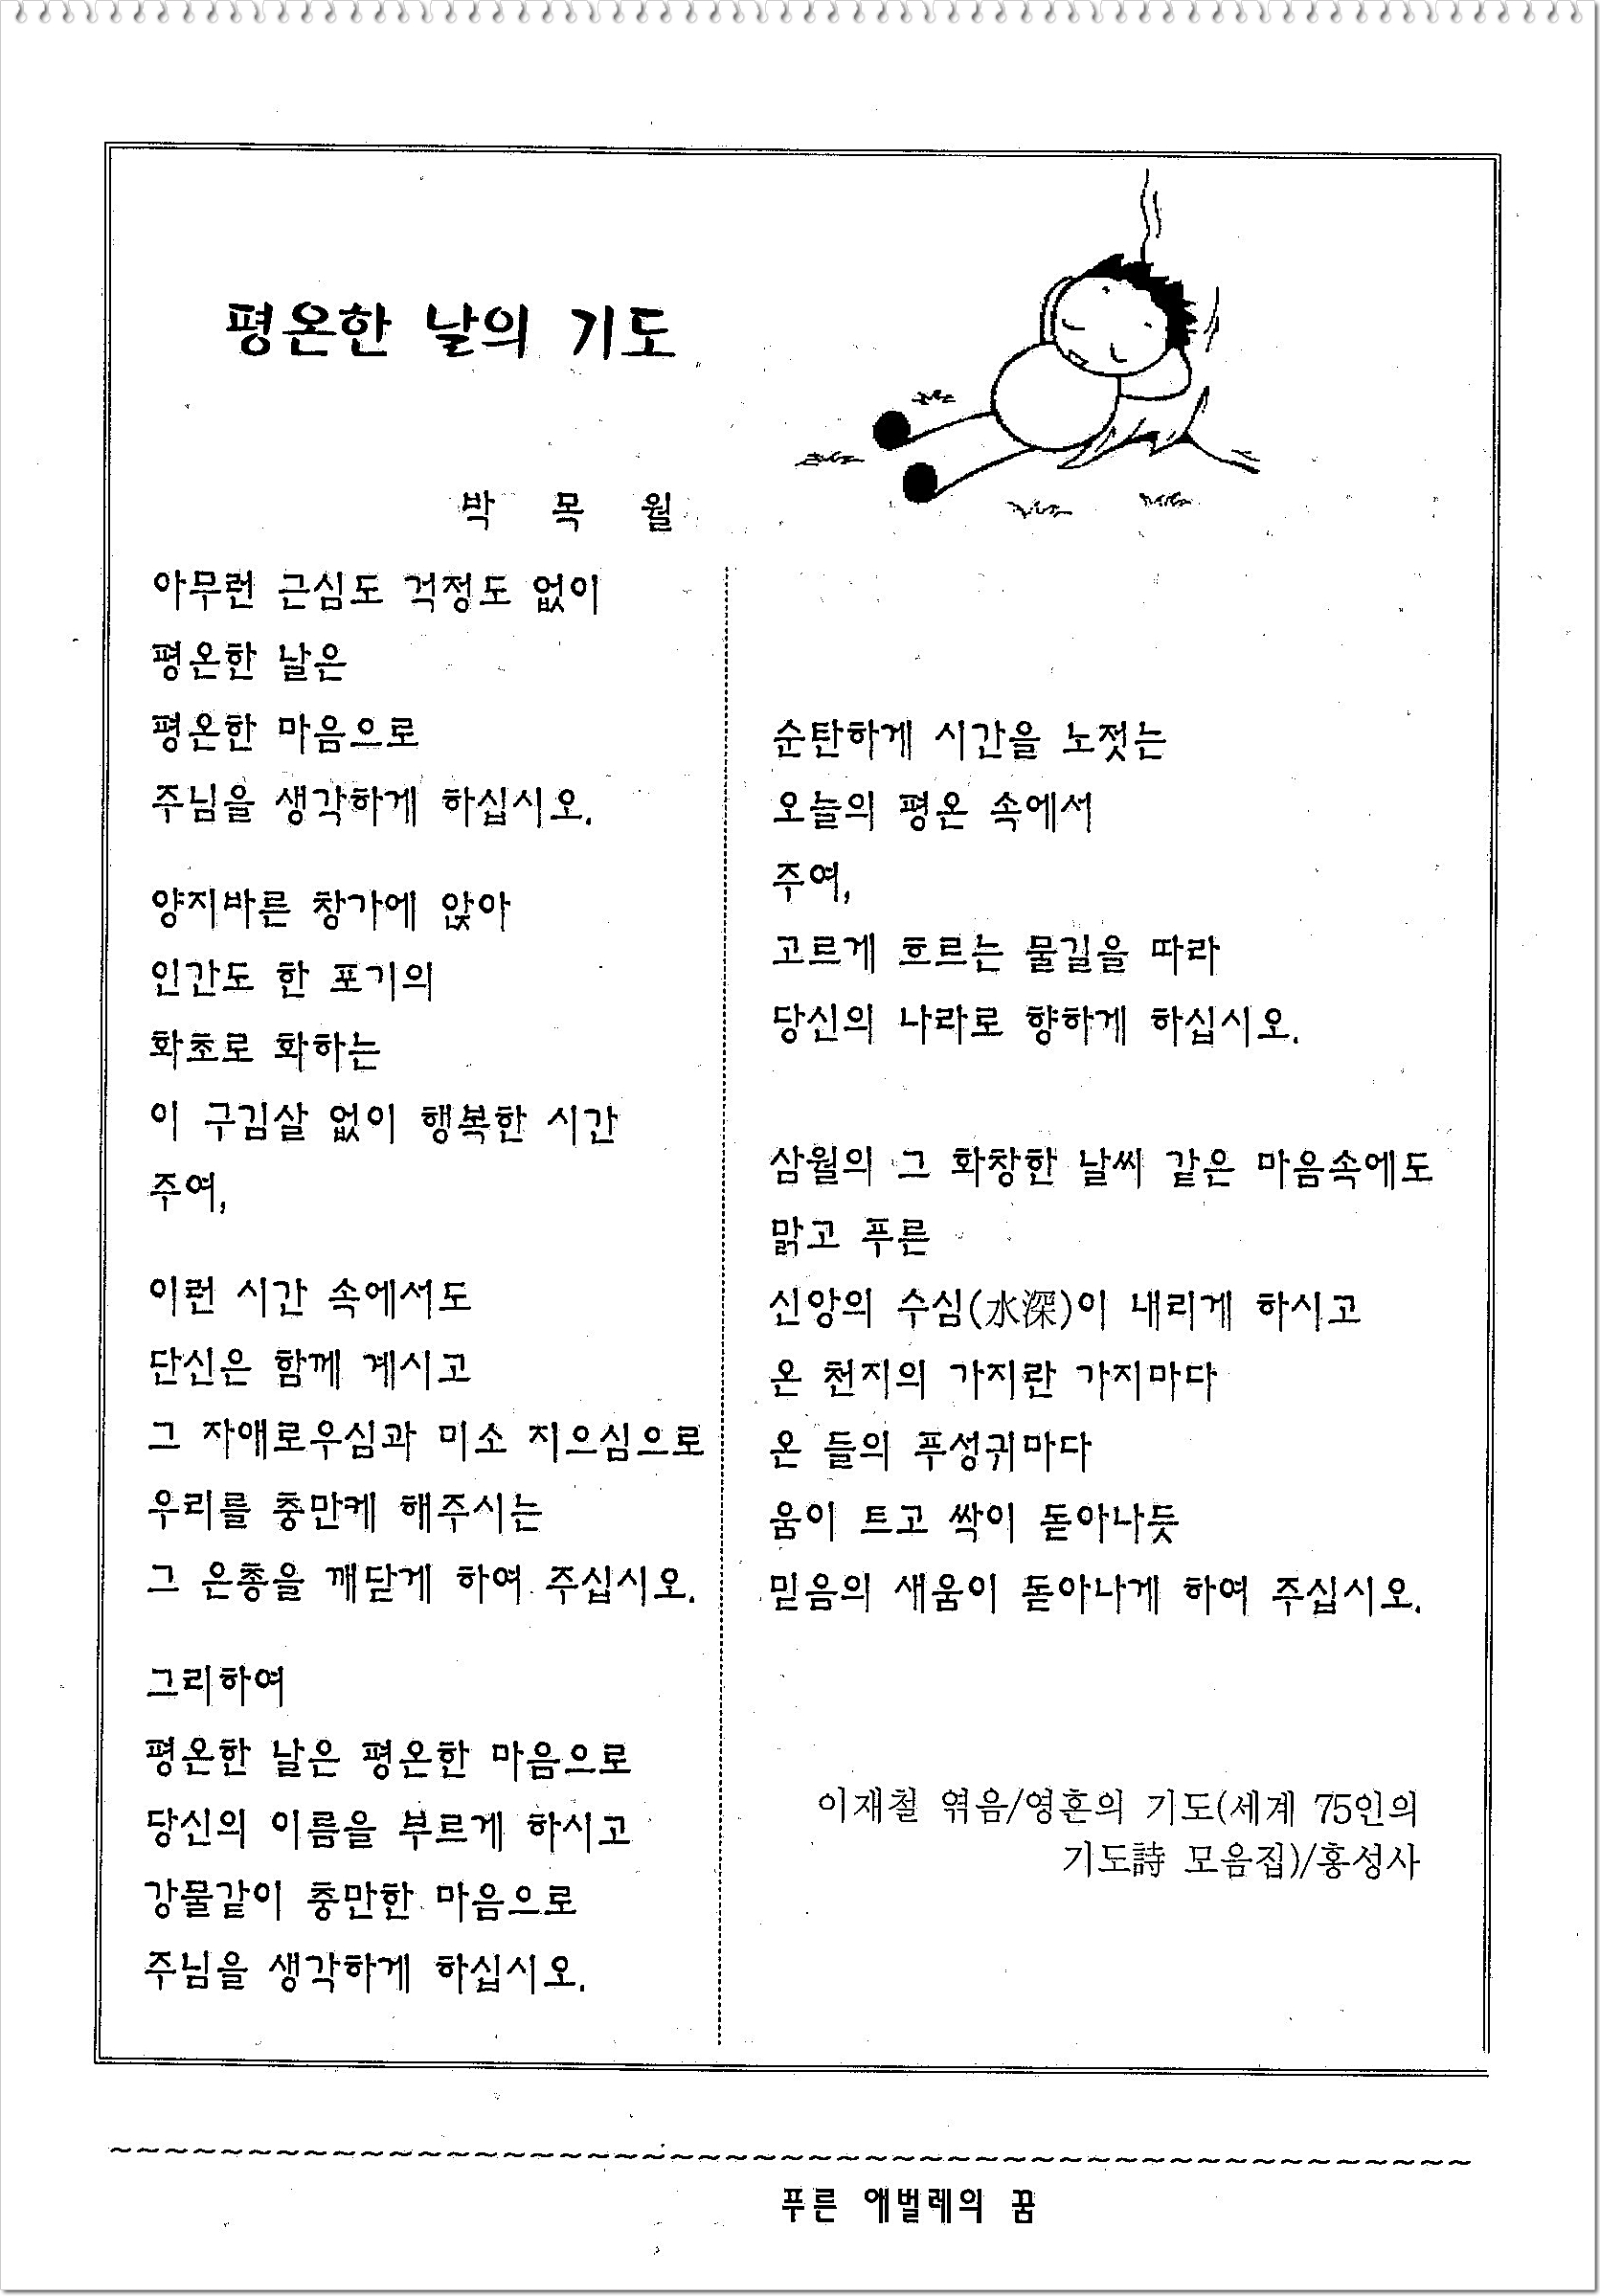 평온한 날의 기도
박 목 월
아무런 근심도 걱정도 없이
평온한 날은
평온한 마음으로
주님을 생각하게 하십시오.
양지바른 창가에 앉아
인간도 한 포기의
화초로 화하는
이 구김살 없이 행복한 시간
주여,
이런 시간 속에서도
단신은 함께 계시고
그 자애로우심과 미소 지으심으로
우리를 충만케 해주시는
그 은총을 깨닫게 하여 주십시오.
그리하여
평온한 날은 평온한 마음으로
당신의 이름을 부르게 하시고
강물같이 충만한 마음으로
주님을 생각하게 하십시오.
순탄하게 시간을 노젓는
오늘의 평온 속에서
주여,
고르게 흐르는 물길을 따라
당신의 나라로 향하게 하십시오.
삼월의 그 화창한 날씨 같은 마음속에도
맑고 푸른
신앙의 수심(水深)이 내리게 하시고
온 천지의 가지란 가지마다
온 들의 푸성귀마다
움이 트고 싹이 돋아나듯
믿음의 새움이 돋아나게 하여 주십시오.
이재철 엮음/영혼의 기도(세계 75인의
기도詩 모음집)/홍성사
푸른 애벌레의 꿈